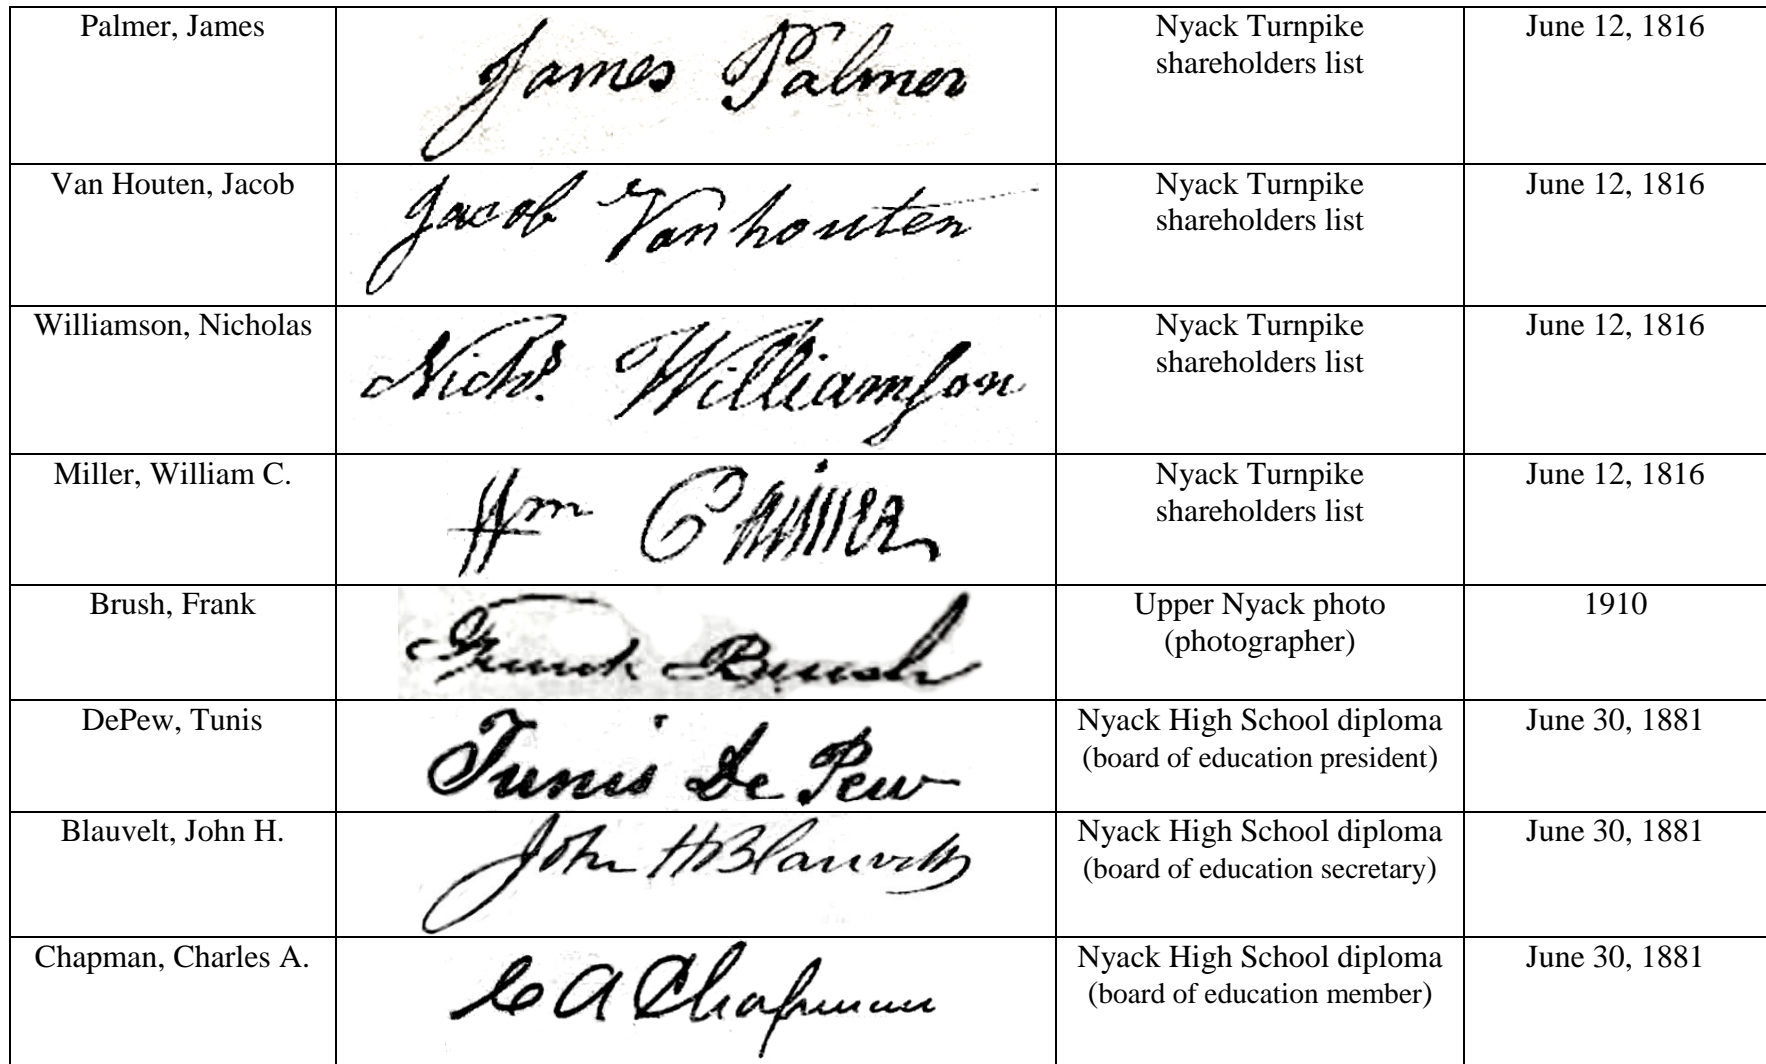 Palmer, James
James Palmer
Nyack Turnpike
shareholders list
June 12, 1816
Van Houten, Jacob
Jacob Vanhouten
Nyack Turnpike
shareholders list
June 12, 1816
Williamson, Nicholas
Nichs. Williamſon
Nyack Turnpike
shareholders list
June 12, 1816
Miller, William C.
Wm C Miller
Nyack Turnpike
shareholders list
June 12, 1816
Brush, Frank
Frank Brush
Upper Nyack photo
(photographer)
1910
DePew, Tunis
Tunis De Pew
Nyack High School diploma
(board of education president)
June 30, 1881
Blauvelt, John H.
John H Blauvelt
Nyack High School diploma
(board of education secretary)
June 30, 1881
Chapman, Charles A.
C A Chapman
Nyack High School diploma
(board of education member)
June 30, 1881